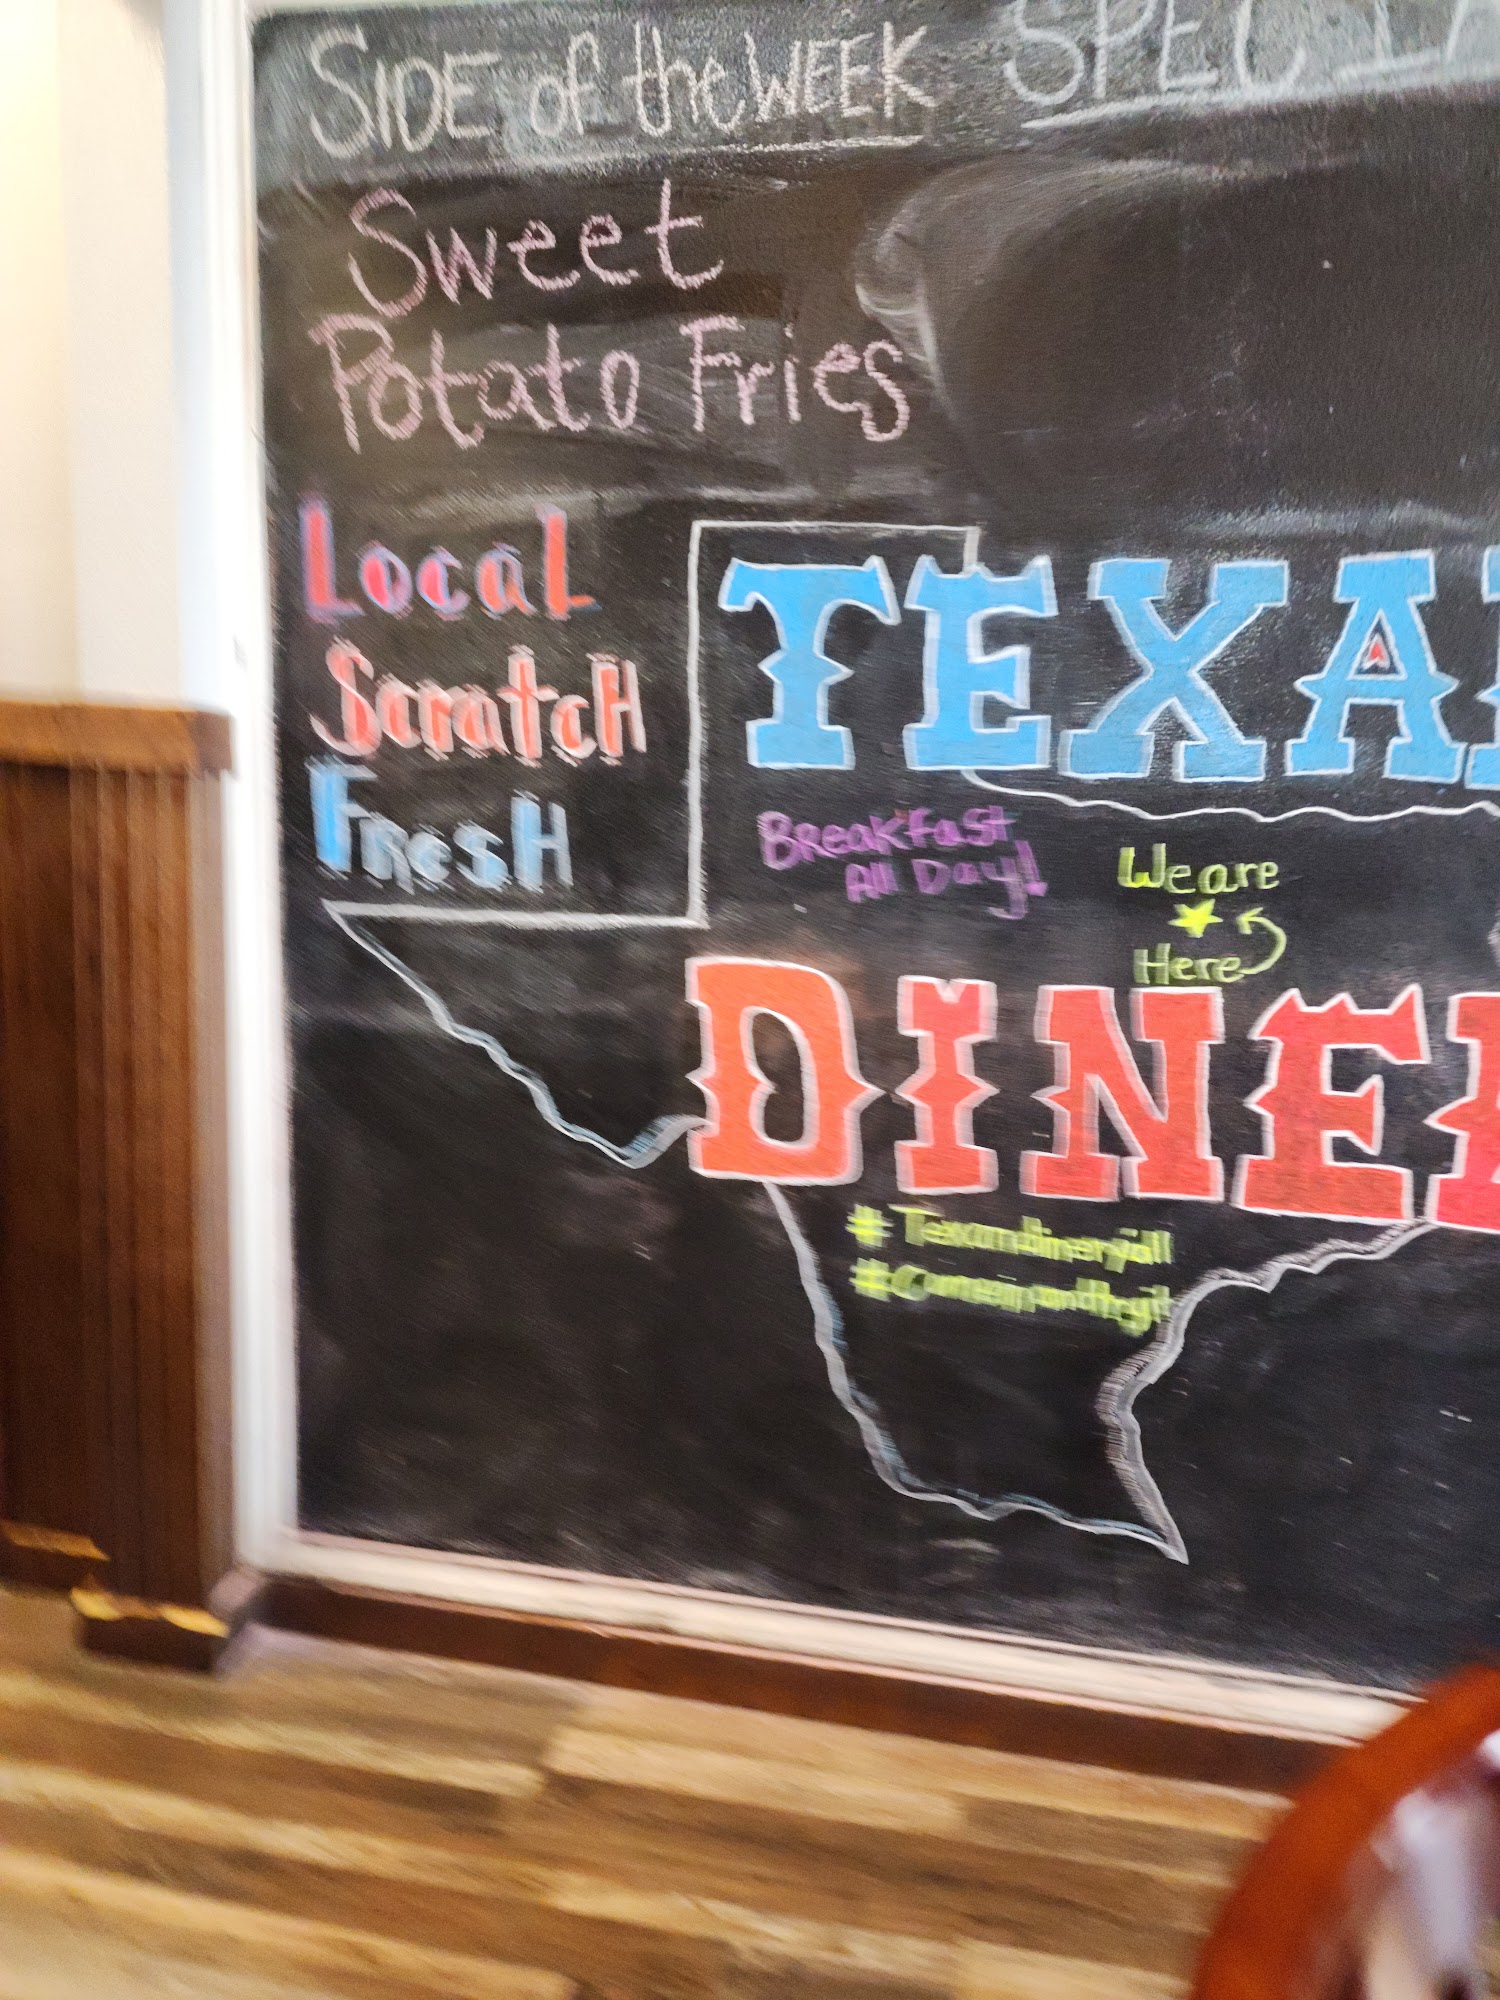 SIDE of the WEEK
SPECIA
Sweet
Potato Fries
Local
Scratch
Fresh
TEXA
Breakfast
All Day!
We are
Here
DINE
#Texandineryall